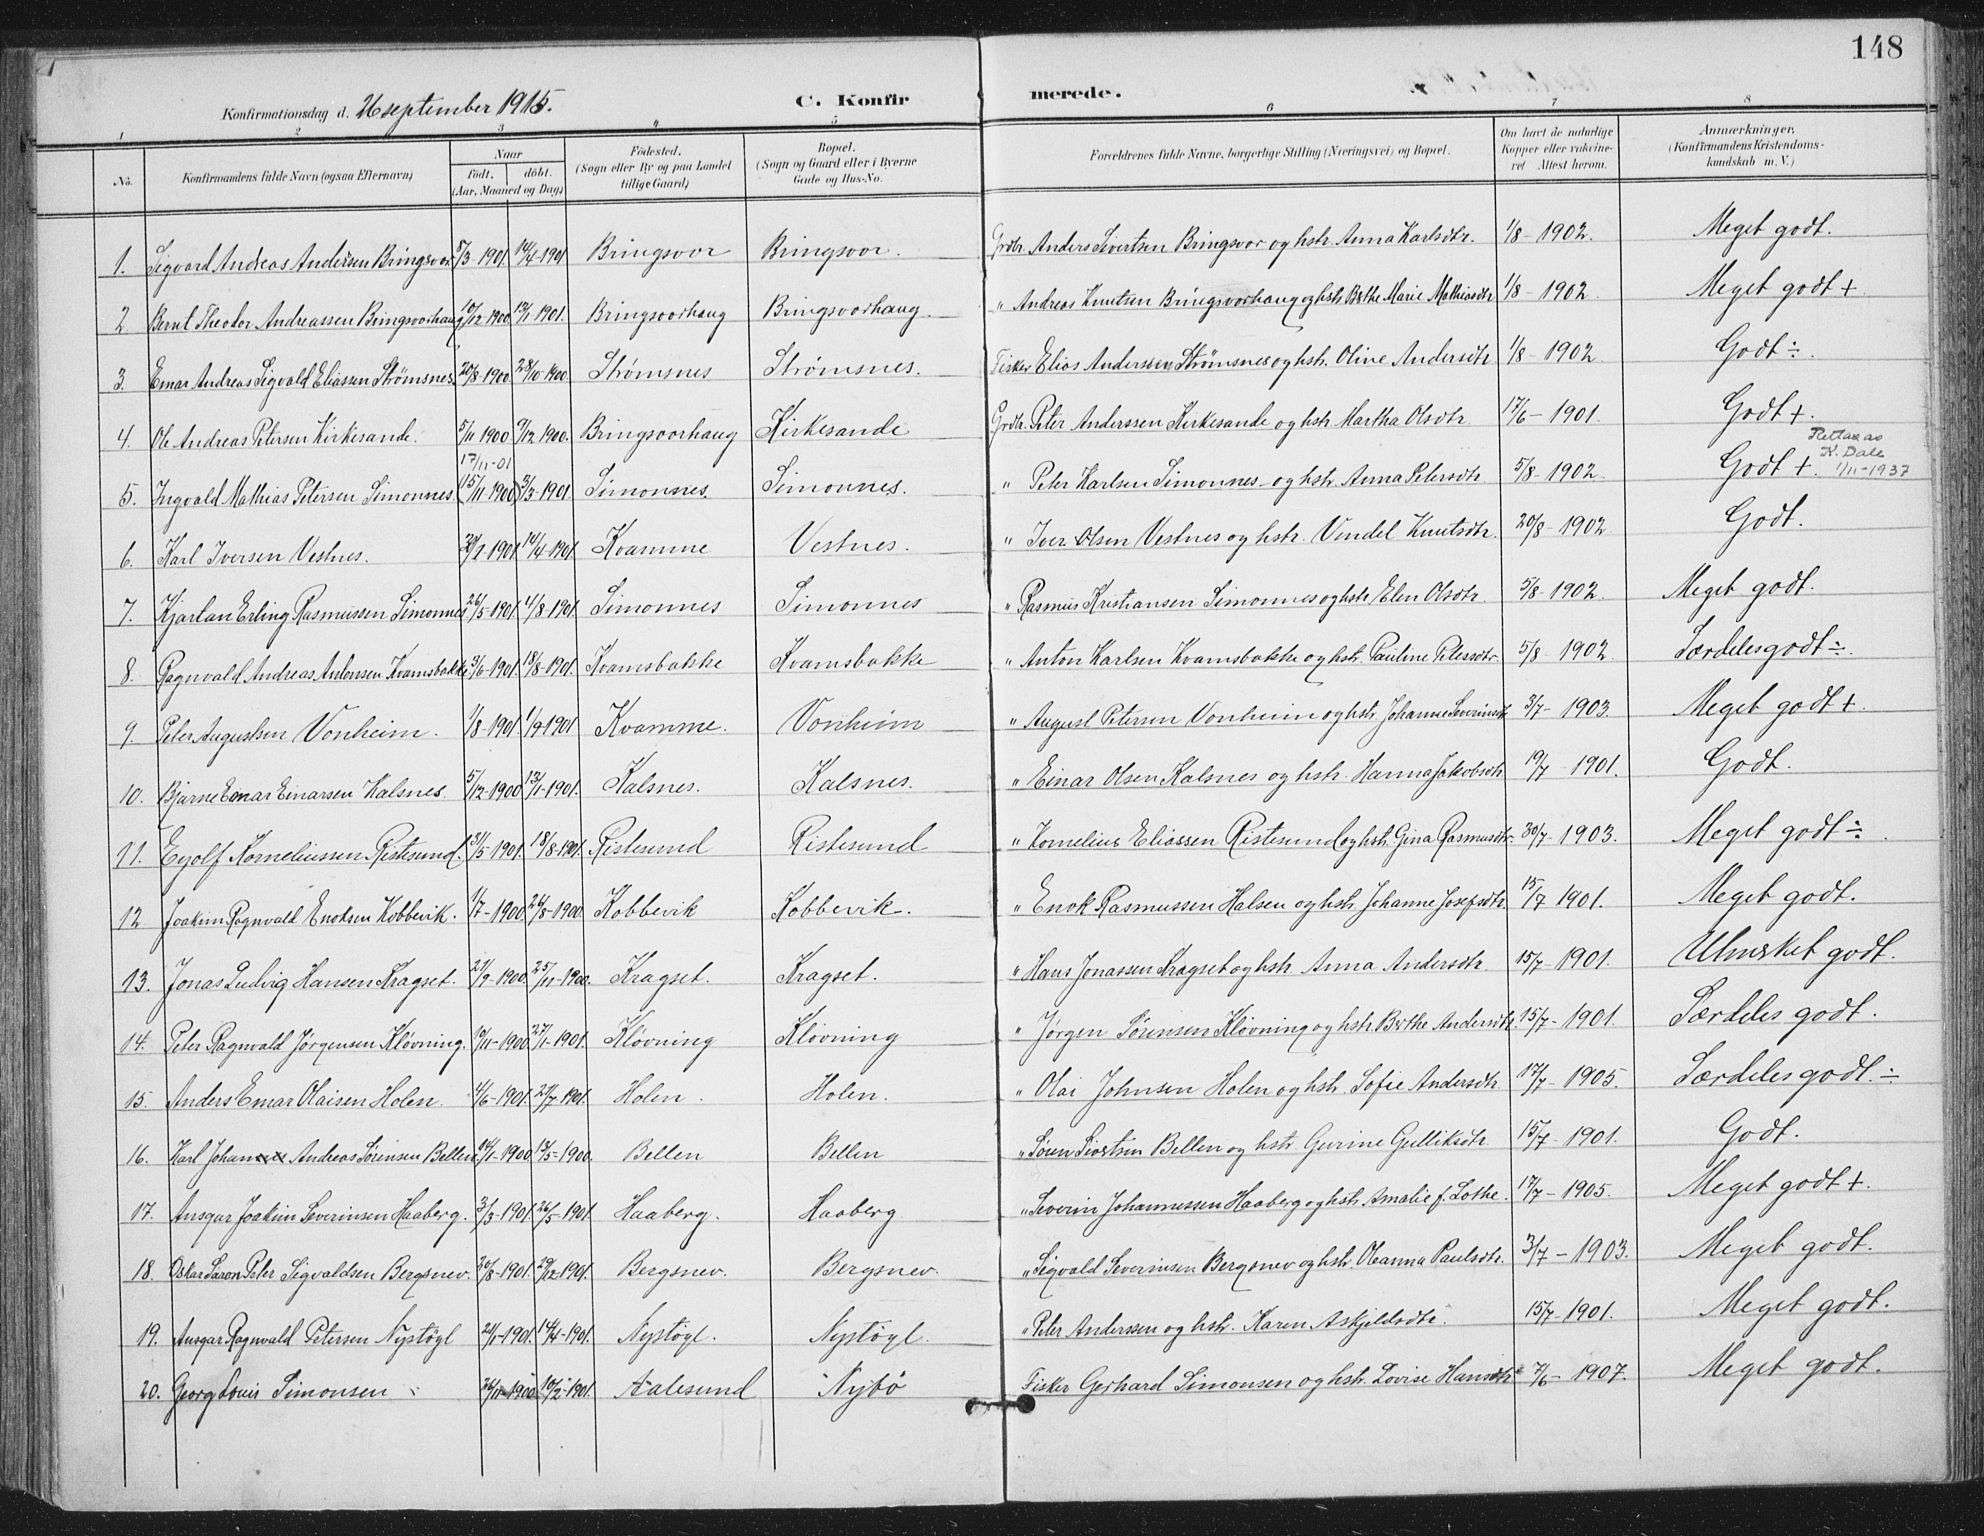 148
Konfirmationsdag d. 26 september 1915.
C. Konfirmerede.
1 2 3 4 5 6 7 8
No. Konfirmandens fulde Navn (ogsaa Efternavn) Naar født. døbt. (Aar, Maaned og Dag) Fødested. (Sogn eller By og paa Landet tillige Gaard) Bopæl. (Sogn og Gaard eller i Byerne Gade og Hus-No. Forældrenes fulde Navne, borgerlige Stilling (Næringsvei) og Bopæl. Om havt de naturlige Kopper eller vakcineret Attest herom. Anmærkninger. (Konfirmandens Kristendomskundskab m. V.)
1. Sigvard Andreas Andersen Bringsvor 5/3-1901 14/4-1901 Bringsvor Bringsvor. Grdbr. Anders Sivertsen Bringsvor og hstr. Anna Karlsdtr. 1/8-1902. Meget godt.
2 Bernt Theodor Andreassen Bringsvorhaug 10/12-1900 13/1-1901. Bringsvorhaug Bringsvorhaug. " Andreas Knutsen Bringsvorhaug og hstr. Berthe Marie Mathiasdtr 1/8-1902. Meget godt +
3. Einar Andreas Sigvald Eliassen Strømsnes. 20/8-1900. 28/10-1900. Strømsnes Strømsnes. Fisker Elias Anderssen Strømsnes og hstr. Oline Andersdtr 1/8-1902 Godt ÷.
4. Ole Andreas Petersen Kirkesande. 5/11 1900 9/12 1900. Bringsvorhaug Kirkesande Grdbr. Peter Anderssen Kirkesande og hstr. Martha Olsdtr. 17/6-1901. Godt +.
17/11-01
Rettax as K. Dale 1/11-1937
5. Ingvald Mathias Petersen Simonnes. (15/11 1900) 3/3-1901 Simonnes. Simonnes. " Peter Karlsen Simonnes og hstr. Anna Petersdtr. 5/8-1902. Godt +.
6. Karl Iversen Vestnes. 1901. 14/4-1901. Kvamme Vestnes. " Iver Olsen Vestnes og hstr. Vendel Knutsdtr. 20/8-1902. Godt.
7. Kjartan Erling Rasmussen Simonnes 26/5-1901. 11/8-1901. Simonnes Simonnes " Rasmus Kristiansen Simonnes og hstr. Elen Olsdtr. 5/8-1902. Meget godt.
8. Ragnvald Andreas Antonsen Kvamsbakke 3/6-1901. 18/8-1901. Kvamsbakke Kvamsbakke " Anton Karlsen Kvamsbakke og hstr. Pauline Petersdtr. 5/8-1902. Særdeles godt ÷.
9. Peter Augustsen Vonheim. 1/8-1901. 1/9-1901 Kvamme. Vonheim " August Petersen Vonheim og hstr. Johanne Severinsdtr. 3/7-1903. Meget godt +.
10. Bjarne Einar Einarsen Kalsnes. 5/12-1900 13/1-1901. Kalsnes. Kalsnes. " Einar Olsen Kalsnes og hstr. Hanna Jakobsdtr. 19/7-1901. Godt.
11. Eyolf Korneliussen Ristesund. 31/5-1901. 18/8-1901. Ristesund Ristesund " Kornelius Eliassen Ristesund og hstr. Gina Rasmusdtr. 30/7-1903. Meget godt ÷
12 Joakim Ragnvald Enoksen Kobbevik. 1/7-1900. 26/8-1900. Kobbevik Kobbevik. " Enok Rasmussen Halsen og hstr. Johanne Josefsdtr. 15/7 1901. Meget godt.
13. Jonas Ludvig Hansen Kragset. 21/9-1900. 25/11-1900. Kragset. Kragset. " Hans Jonassen Kragset og hstr. Anna Andersdtr. 15/7-1901. Utmerket godt.
14. Peter Ragnvald Jørgensen Kløvning. 10/11-1900. 27/1-1901. Kløvning Kløvning " Jørgen Sørensen Kløvning og hstr. Berthe Andersdtr. 15/7-1901. Særdeles godt.
15. Anders Einar Olaisen Holen. 4/6-1901. 21/7-1901. Holen. Holen. " Olai Johnsen Holen og hstr. Sofie Andersdtr. 17/7-1905. Særdeles godt. ÷
16. Karl Johan Andreas Sørensen Bellen. 14/1-1900. 13/5-1900. Bellen Bellen " Søren Sivertsen Bellen og hstr. Gurine Gulliksdtr. 15/7-1901. Godt.
17. Ansgar Joakim Severinsen Haaberg. 3/3-1901. 26/5-1901. Haaberg. Haaberg. " Severin Johannessen Haaberg og hstr. Amalie f. Lothe. 17/7-1905. Meget godt +.
18. Oskar Saron Peter Sigvaldsen Bergsnev. 20/8-1901. 29/12-1901. Bergsnev. Bergsnev. " Sigvald Severinsen Bergsnev og hstr. Oleanna Paulsdtr. 3/7-1903. Meget godt.
19. Ansgar Ragnvald Petersen Nystøyl 21/1-1901. 14/4-1901. Nystøyl. Nystøyl. " Peter Anderssen og hstr. Karen Askjeldsdtr. 15/7-1901. Meget godt.
20. Georg Louis Simonsen 26/11-1900. 10/2-1901. Aalesund Nybø Fisker Gerhard Simonsen og hstr. Lovise Hansdtr. 7/6-1907. Meget godt.